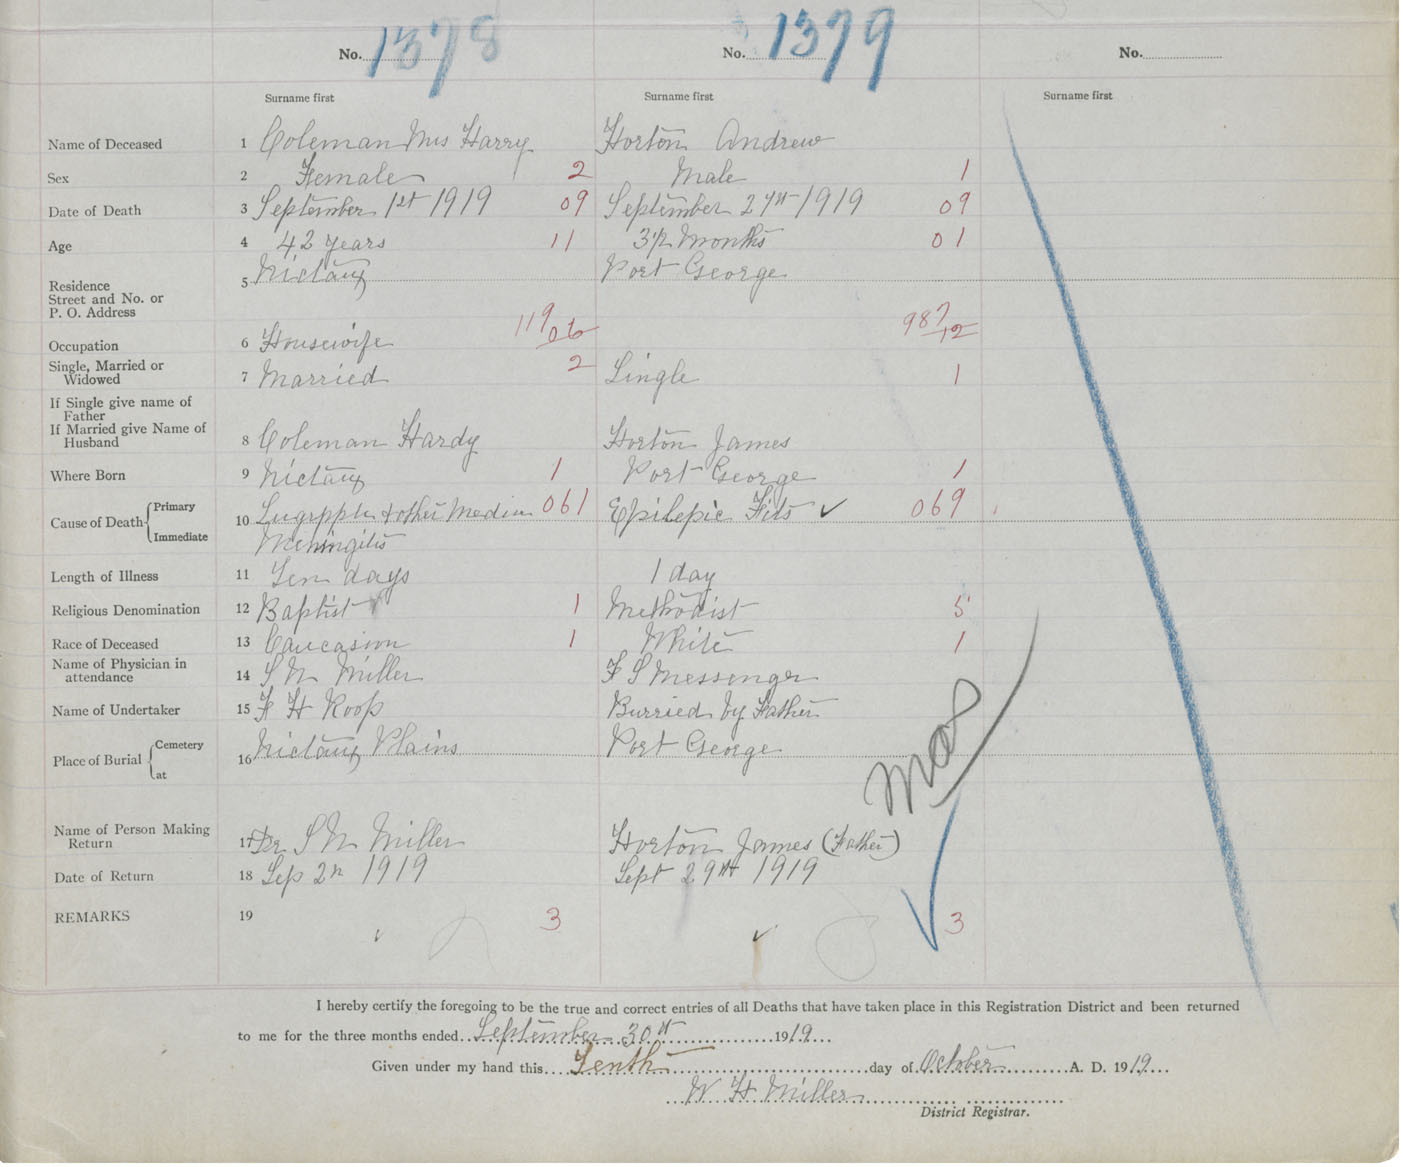 No. 1378 No. 1379 No.
Surname first Surname first Surname first
Name of Deceased 1 Coleman Mrs Harry Horton Andrew
Sex 2 Female 2 Male 1
Date of Death 3 September 1st 1919 09 September 27th 1919 09
Age 4 42 years 11 3½ Months 01
Residence
Street and No. or
P. O. Address 5 Nictaux Port George
Occupation 6 Housewife 119 06 987 12
Single, Married or
Widowed 7 Married 2 Single 1
If Single give name of
Father
If Married give Name of
Husband 8 Coleman Hardy Horton James
Where Born 9 Nictaux 1 Port George 1
Cause of Death Primary 10 Lagrippe & other Medium 061 Epilepic Fits ✓ 069
Immediate Meningitis
Length of Illness 11 Ten days 1 day
Religious Denomination 12 Baptist 1 Methodist 5
Race of Deceased 13 Caucasion 1 White 1
Name of Physician in
attendance 14 S N Miller F S Messenger
Name of Undertaker 15 F H Roop Burried by Father
Place of Burial Cemetery
at 16 Nictaux Plains Port George
Name of Person Making
Return 17 Dr S N Miller Horton James (Father)
Date of Return 18 Sep 2n 1919 Sept 29th 1919
REMARKS 19 3 3
I hereby certify the foregoing to be the true and correct entries of all Deaths that have taken place in this Registration District and been returned
to me for the three months ended September 30th 1919
Given under my hand this Tenth day of October A. D. 1919
W H Miller
District Registrar.